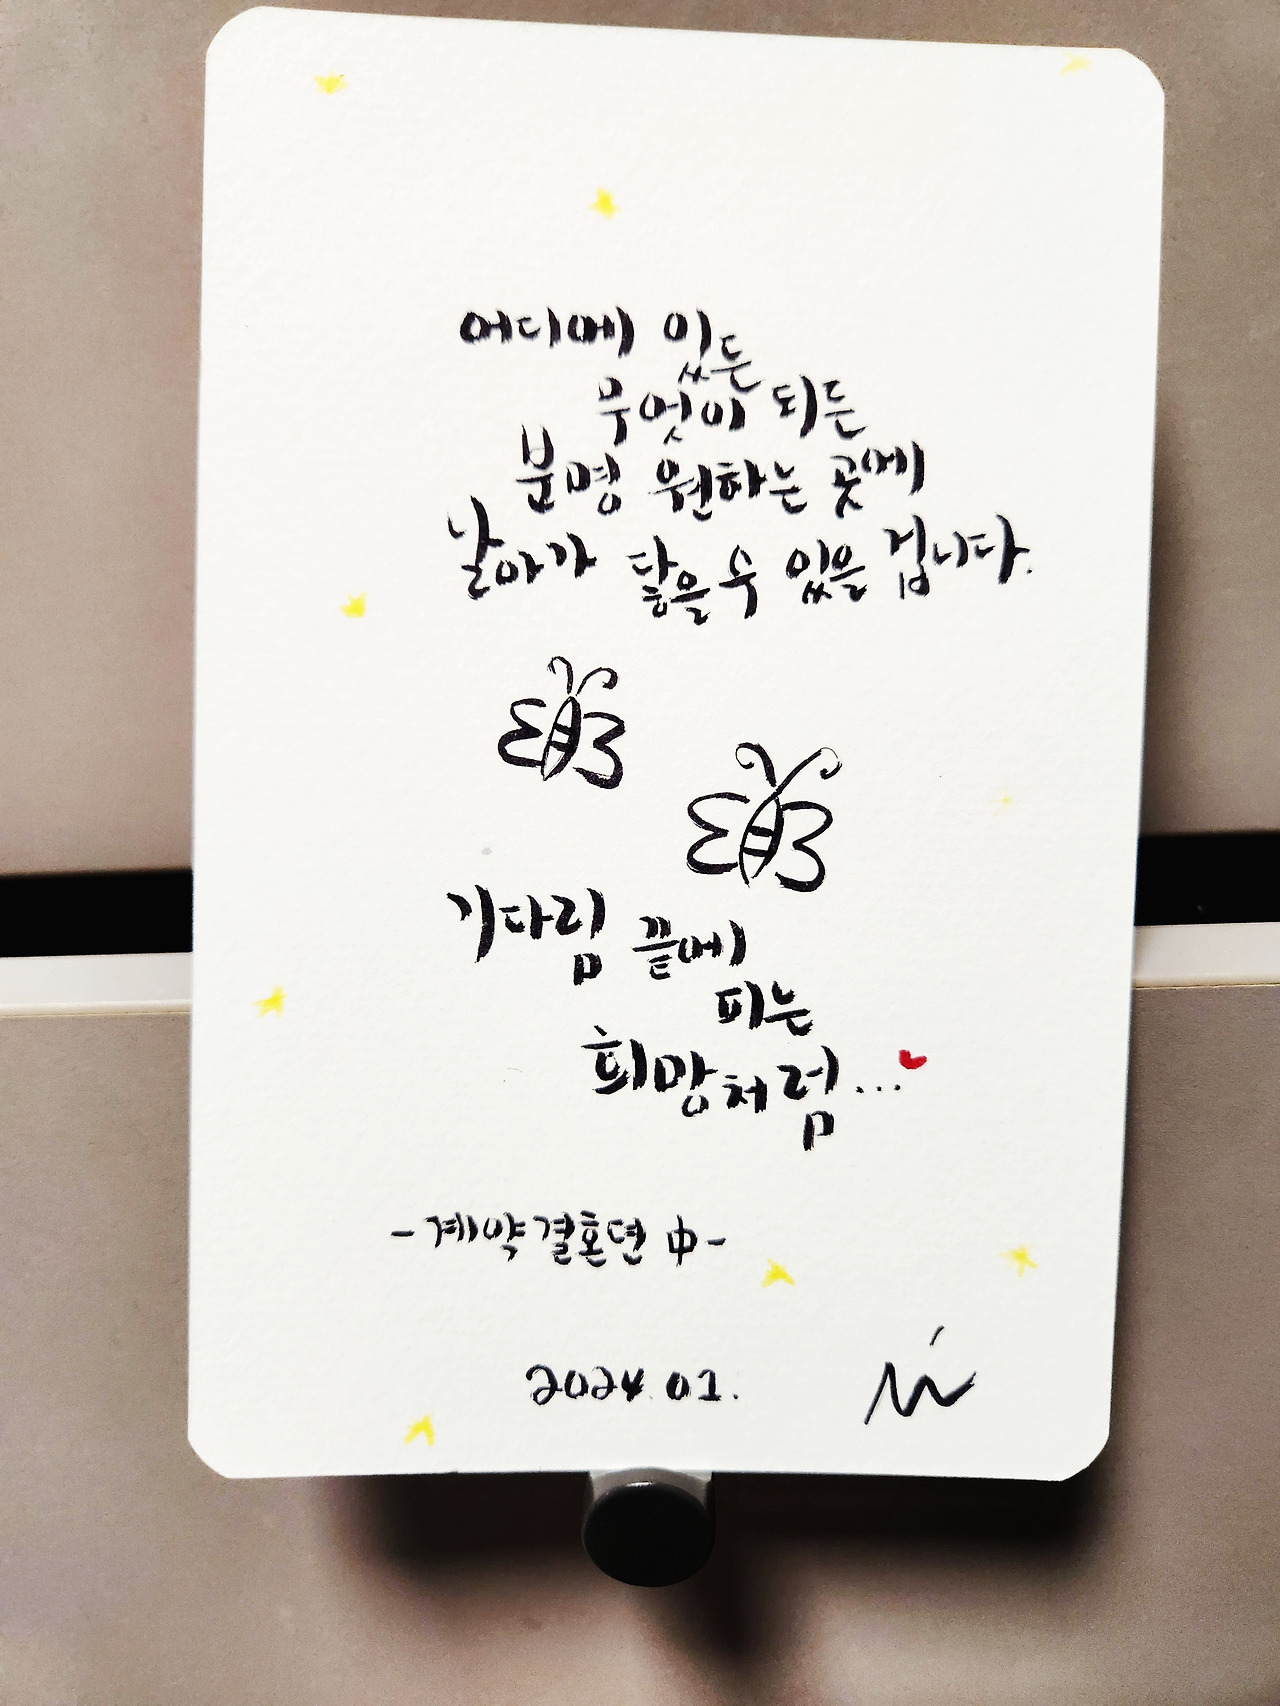 어디에 있든
무엇이 되든
분명 원하는 곳에
날아가 닿을 수 있을 겁니다.
기다림 끝에
피는
희망처럼...
-계약결혼뎐 中-
2024. 01.